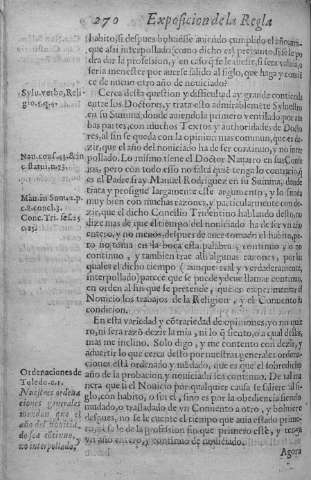 270 Exposicion de la Regla
habito, si despues boluiesse auiendo cumplido el año an-
que assi interpollado (como dicho es) presunto, si se le po
dra dar la profession, y en caso que se le assiste, si sera valida, o
seria menester por auerse salido al siglo, que haga y comi
ce de nueuo otro año de nouiciado?
Cerca desta question y dificultad ay grande contienda
entre los Doctores, y trata esto admirablemẽte Syluestro
en su Summa, donde auiendola primero ventilado por am
bas partes, con muchos Textos y authoridades de Docto
res, al fin se queda con la opinion mas commun, que es de-
zir, que el año del nouiciado ha de ser continuo, y no inter
pollado. Lo mismo tiene el Doctor Nauarro en sus Conse
jos, pero con todo esso no falta quiẽ tenga lo contrario,
es el Padre fray Manuel Rodriguez en su Summa, donde
trata y prosigue largamente este argumento, y lo funda
muy bien con muchas razones, y particularmente con de-
zir, que el dicho Concilio Tridentino hablando desto, no
dize mas de que el tiempo del nouiciado ha de ser vn año
entero, y no menos, despues de auer tomado el habito, pe-
ro no toma en la boca esta palabra, continuo, o no
continuo, y tambien trae alli algunas razones, por las
quales el dicho tiempo (aunque real y verdaderamente
interpollado) parece que se puede y deue llamar continuo,
en orden al fin que se pretende, que es experimentar el
Nouicio los trabajos de la Religion, y el Conuento su
condicion.
En esta variedad y cõtrariedad de opiniones, yo no quie
ro, ni sera razõ dezir la mia, ni lo q̃ siento, o a qual dellas
mas me inclino. Solo digo, y me contento con dezir, y
aduertir lo que cerca desto por nuestras generales ordena-
ciones està ordenado y mandado, que es que el sobredicho
año de la probacion y nouiciado sea continuo. De tal ma
nera que si el Nouicio por qualquier causa se saliere al si-
glo, con habito, o sin el, sino es por la obediencia siendo
mudado, o trasladado de vn Conuento a otro, y boluiere
despues, no se le cuente el tiempo que auia estado prime-
ro, ni se le de la profession sin que primero este, y tenga
vn año entero, y continuo de nouiciado.
Agora
Sylu. verbo, Reli-
gio. 5. q. 4.
Nau. conf. 43. & in
c. statui. n. 73.
Man. in Summa. p.
2. c. concl. 3.
Conc. Tri. sess. 25
c. 15.
Ordenaciones de
Toledo. c. 1.
Nuestras ordena
ciones generales
mandan que el
año del nouicia-
do sea cõtinuo, y
no interpollado,